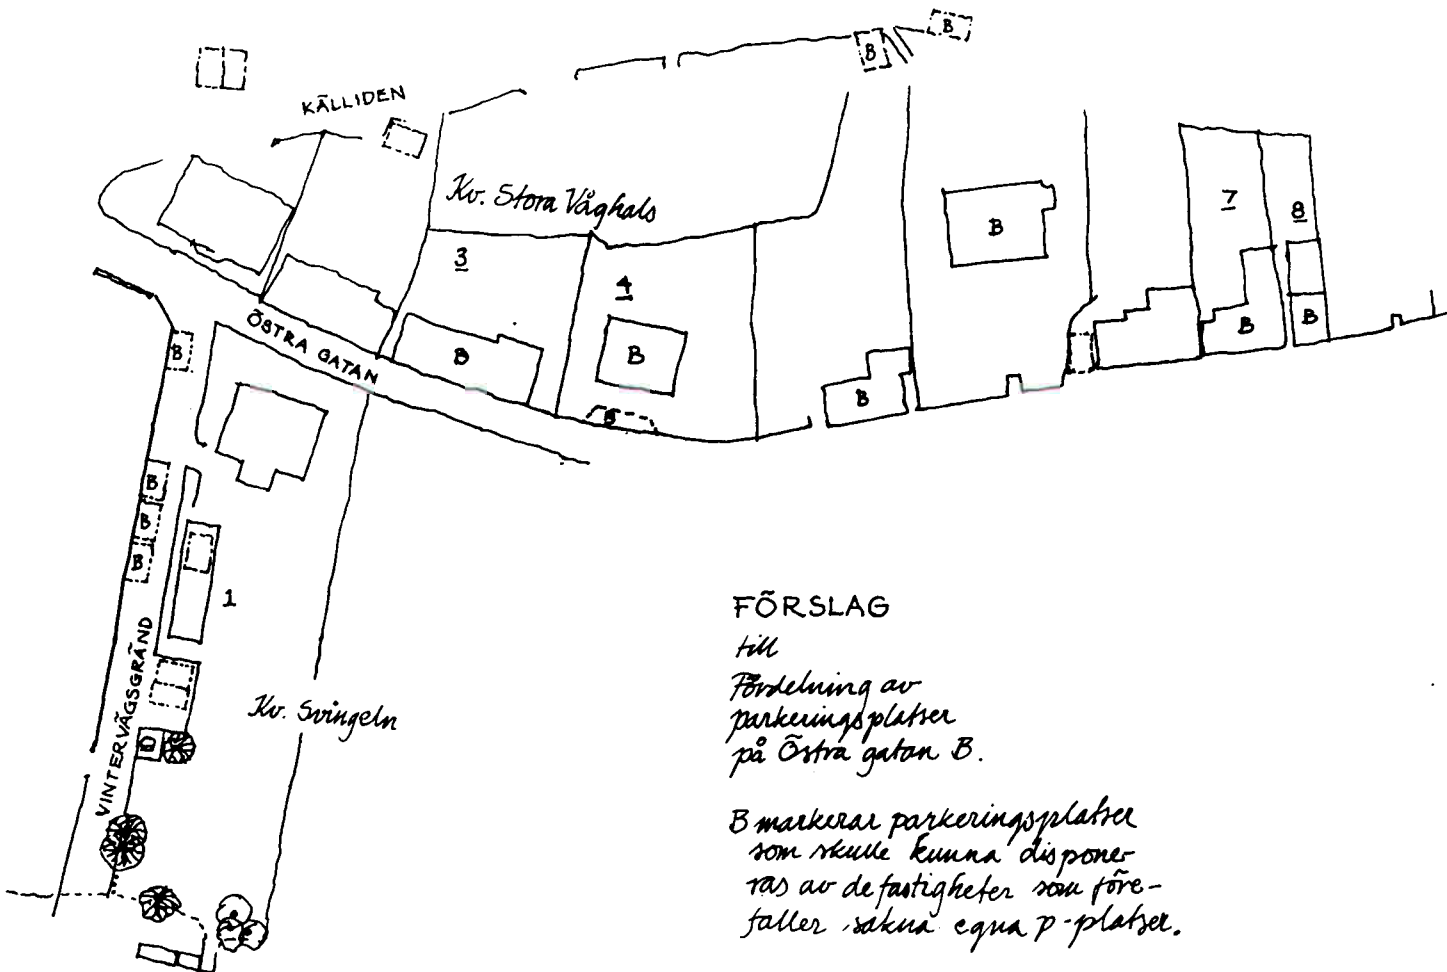 B
B
KÄLLIDEN
Kv. Stora Våghals
7
8
B
3
4
ÖSTRA GATAN
B
B
B
B
B
B
B
B
B
B
1
VINTERVÄGSGRÄND
Kv. Svingeln
FÖRSLAG
till
Fördelning av
parkeringsplatser
på Östra gatan B.
B markerar parkeringsplatser
som skulle kunna disponer-
ras av de fastigheter som före-
faller sakna egna p-platser.